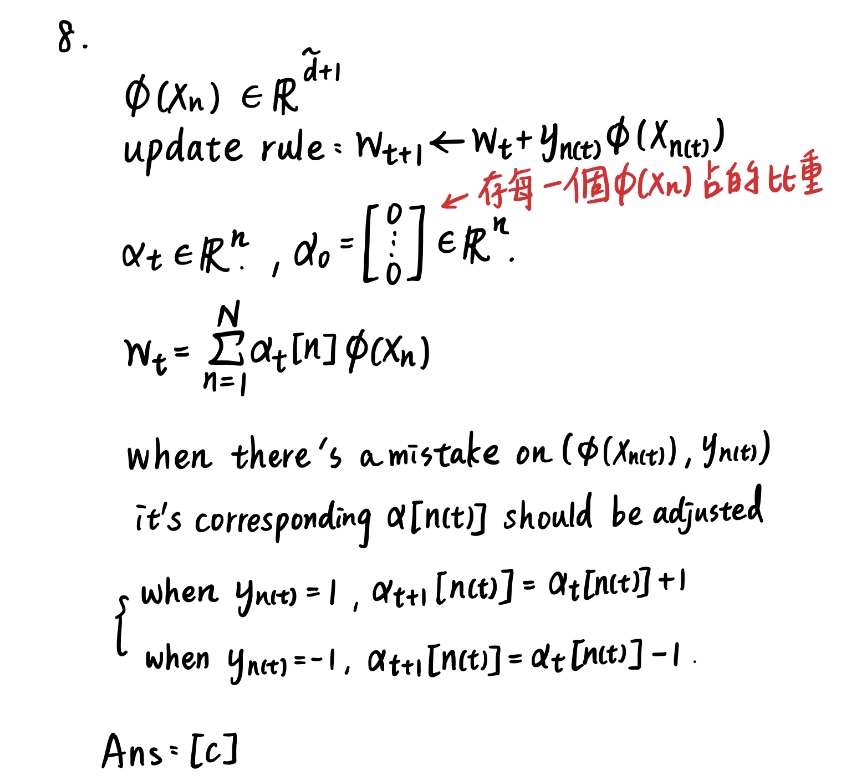 8.
ϕ(xₙ) ∈ ℝ^{d̃+1}
update rule: W_{t+1} ← W_t + y_{n(t)} ϕ(x_{n(t)})
← 存每一個ϕ(xₙ)占的比重
α_t ∈ ℝⁿ. , α₀ = [0 ⋮ 0] ∈ ℝⁿ.
W_t = ∑_{n=1}^{N} α_t[n] ϕ(xₙ)
when there's a mistake on (ϕ(x_{n(t)}), y_{n(t)})
it's corresponding α[n(t)] should be adjusted
{ when y_{n(t)} = 1 , α_{t+1}[n(t)] = α_t[n(t)] + 1
when y_{n(t)} = -1, α_{t+1}[n(t)] = α_t[n(t)] - 1 .
Ans = [c]